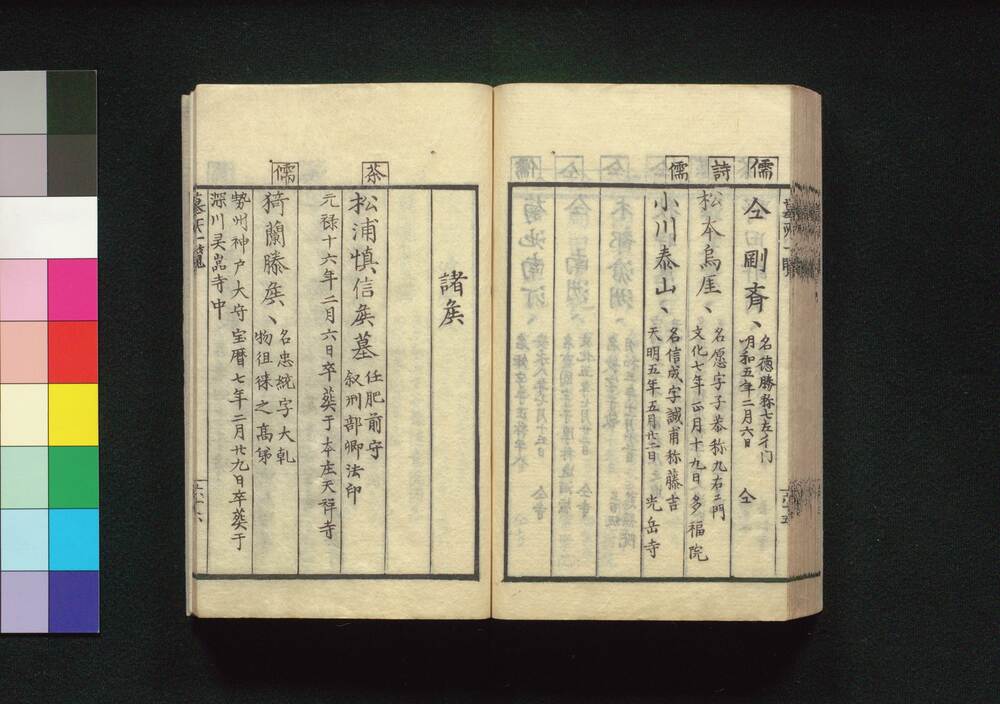 儒
仝剛斎、
名徳勝称七左衛門
明和五年二月六日
仝
詩
松本烏厓、
名愿字子恭称九右ヱ門
文化七年正月十九日
多福院
儒
小川泰山、
名信成字誠甫称藤吉
天明五年五月廿二日
光岳寺
諸矦
茶
松浦慎信矦墓
任肥前守
叙刑部卿法印
元禄十六年二月六日卒葬于本庄天祥寺
儒
猗蘭滕矦、
名忠統字大乹
物徂徠之高第
勢州神戸大守宝暦七年二月廿九日卒葬于
深川灵岩寺中
墓所一覧
六十六